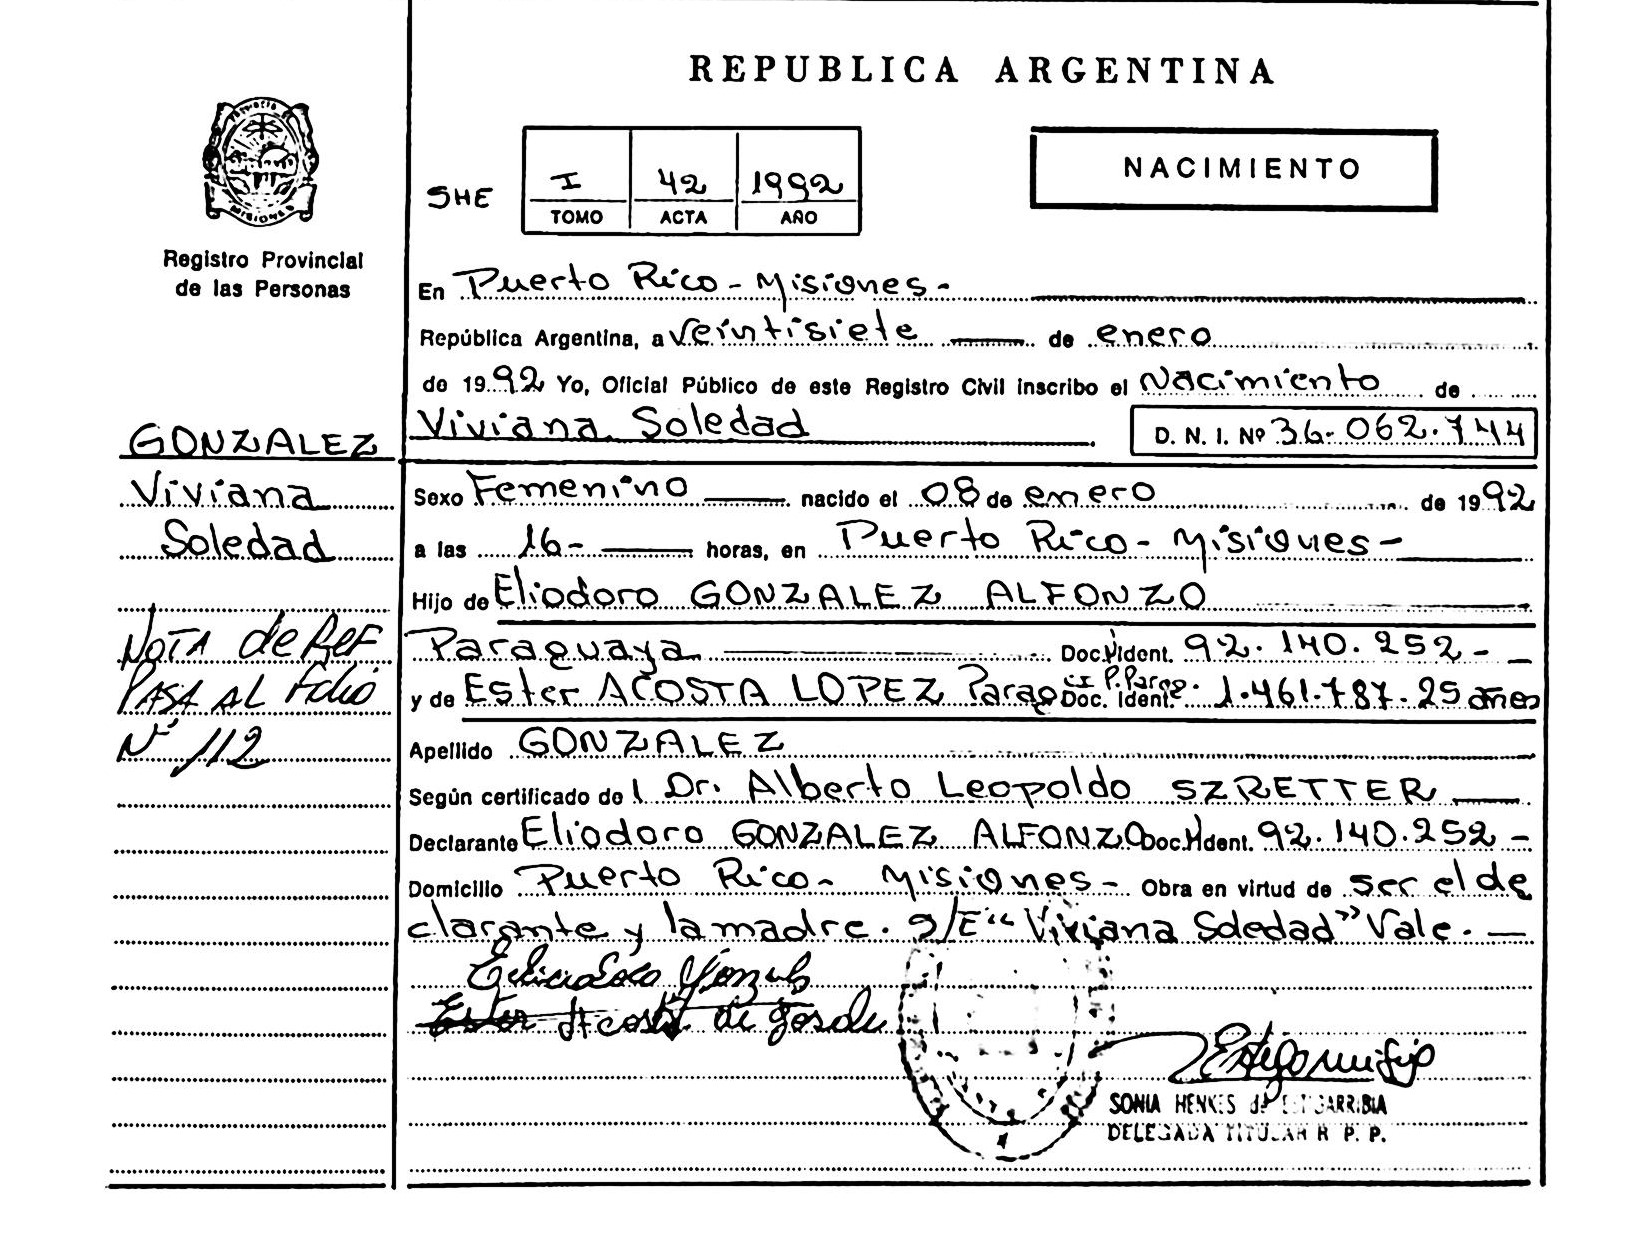 REPUBLICA ARGENTINA
NACIMIENTO
SHE
I 42 1992
TOMO ACTA AÑO
MISIONES
Registro Provincial
de las Personas
En Puerto Rico - Misiones -
República Argentina, a veintisiete de enero
de 1992 Yo, Oficial Público de este Registro Civil inscribo el Nacimiento de
Viviana Soledad
D. N. I. Nº 36-062.744
GONZALEZ
Viviana
Soledad
Sexo Femenino nacido el 08 de enero de 1992
a las 16- horas, en Puerto Rico - Misiones -
Hijo de Eliodoro GONZALEZ ALFONZO
Paraguaya Doc. Ident. 92.140.252 -
y de Ester ACOSTA LOPEZ Parag Doc. Ident. CI P. Parag. 1.461.787. 25 años
NOTA de Ref
PASA AL Folio
Nº 112
Apellido GONZALEZ
Según certificado de l Dr. Alberto Leopoldo SZRETTER
Declarante Eliodoro GONZALEZ ALFONZO Doc. Ident. 92.140.252 -
Domicilio Puerto Rico - Misiones - Obra en virtud de ser el de
clarante y la madre. S/E "Viviana Soledad" Vale. -
Ester Acosta de
SONIA HENKES de ESTIGARRIBIA
DELEGADA TITULAR R. P. P.